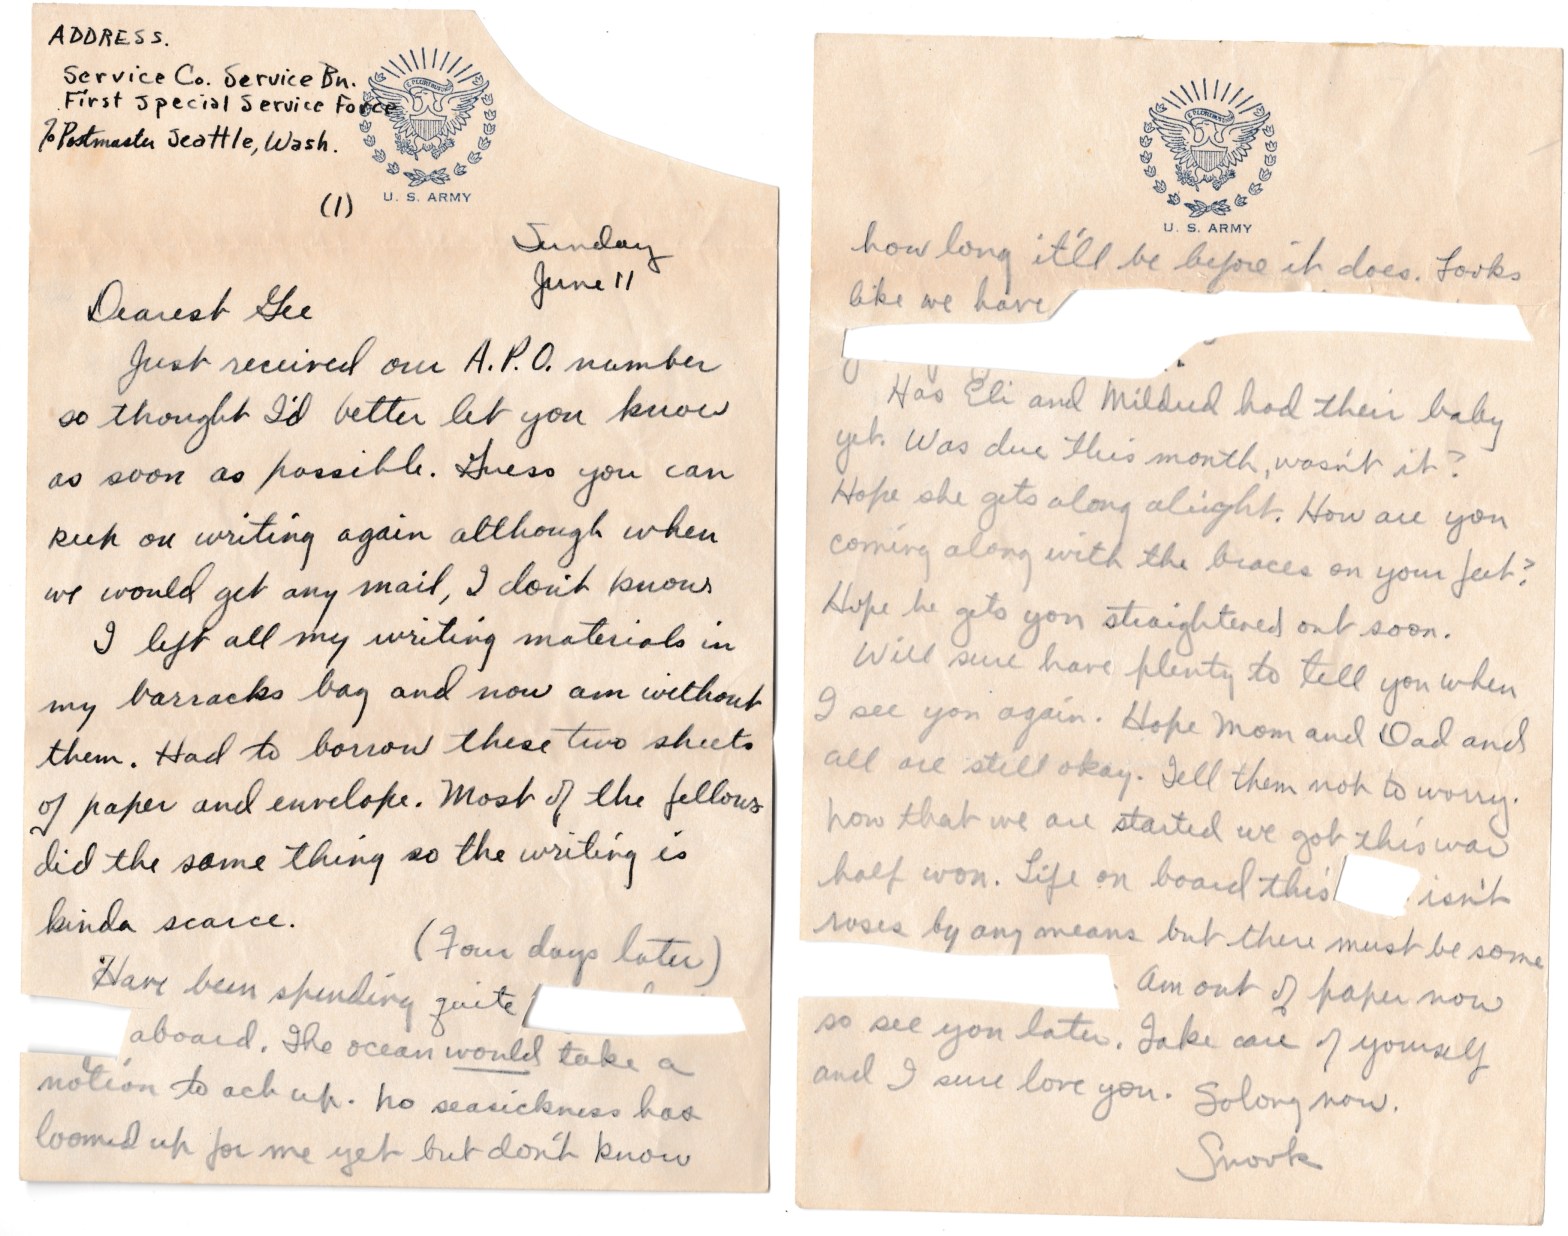 ADDRESS.
Service Co. Service Bn.
First Special Service Force
℅ Postmaster Seattle, Wash.
U. S. ARMY
(1)
Sunday
June 11
Dearest Gee
Just received our A.P.O. number
so thought I'd better let you know
as soon as possible. Guess you can
keep on writing again although when
we would get any mail, I don't know
I left all my writing materials in
my barracks bag and now am without
them. Had to borrow these two sheets
of paper and envelope. Most of the fellows
did the same thing so the writing is
kinda scarce.
(Four days later)
Have been spending quite
aboard. The ocean would take a
notion to act up. No seasickness has
loomed up for me yet but don't know
U. S. ARMY
how long it'll be before it does. Looks
like we have
Has Eli and Mildred had their baby
yet. Was due this month, wasn't it?
Hope she gets along alright. How are you
coming along with the braces on your feet?
Hope he gets you straightened out soon.
Will sure have plenty to tell you when
I see you again. Hope Mom and Dad and
all are still okay. Tell them not to worry.
now that we are started we got this war
half won. Life on board this isn't
roses by any means but there must be some
Am out of paper now
so see you later. Take care of yourself
and I sure love you. Solong now.
Snook